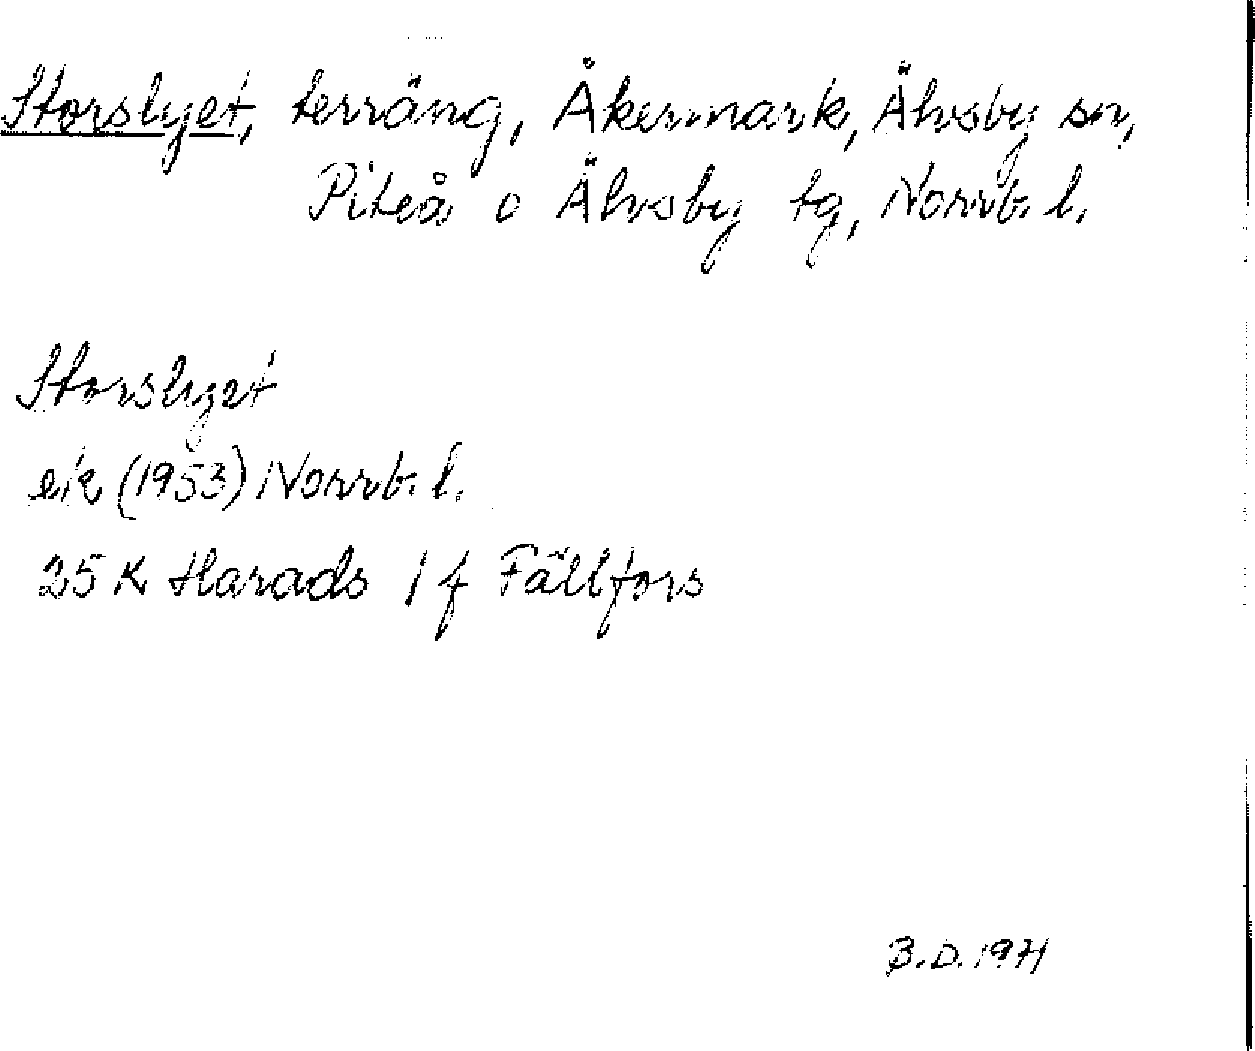 Storslyet, terräng, Åkermark, Älvsby sn,
Piteå o Älvsby tg, Norrb. l.
Storslyet
ek (1953) Norrb. l.
25 K Harads 1 f Fällfors
B.D. 1971